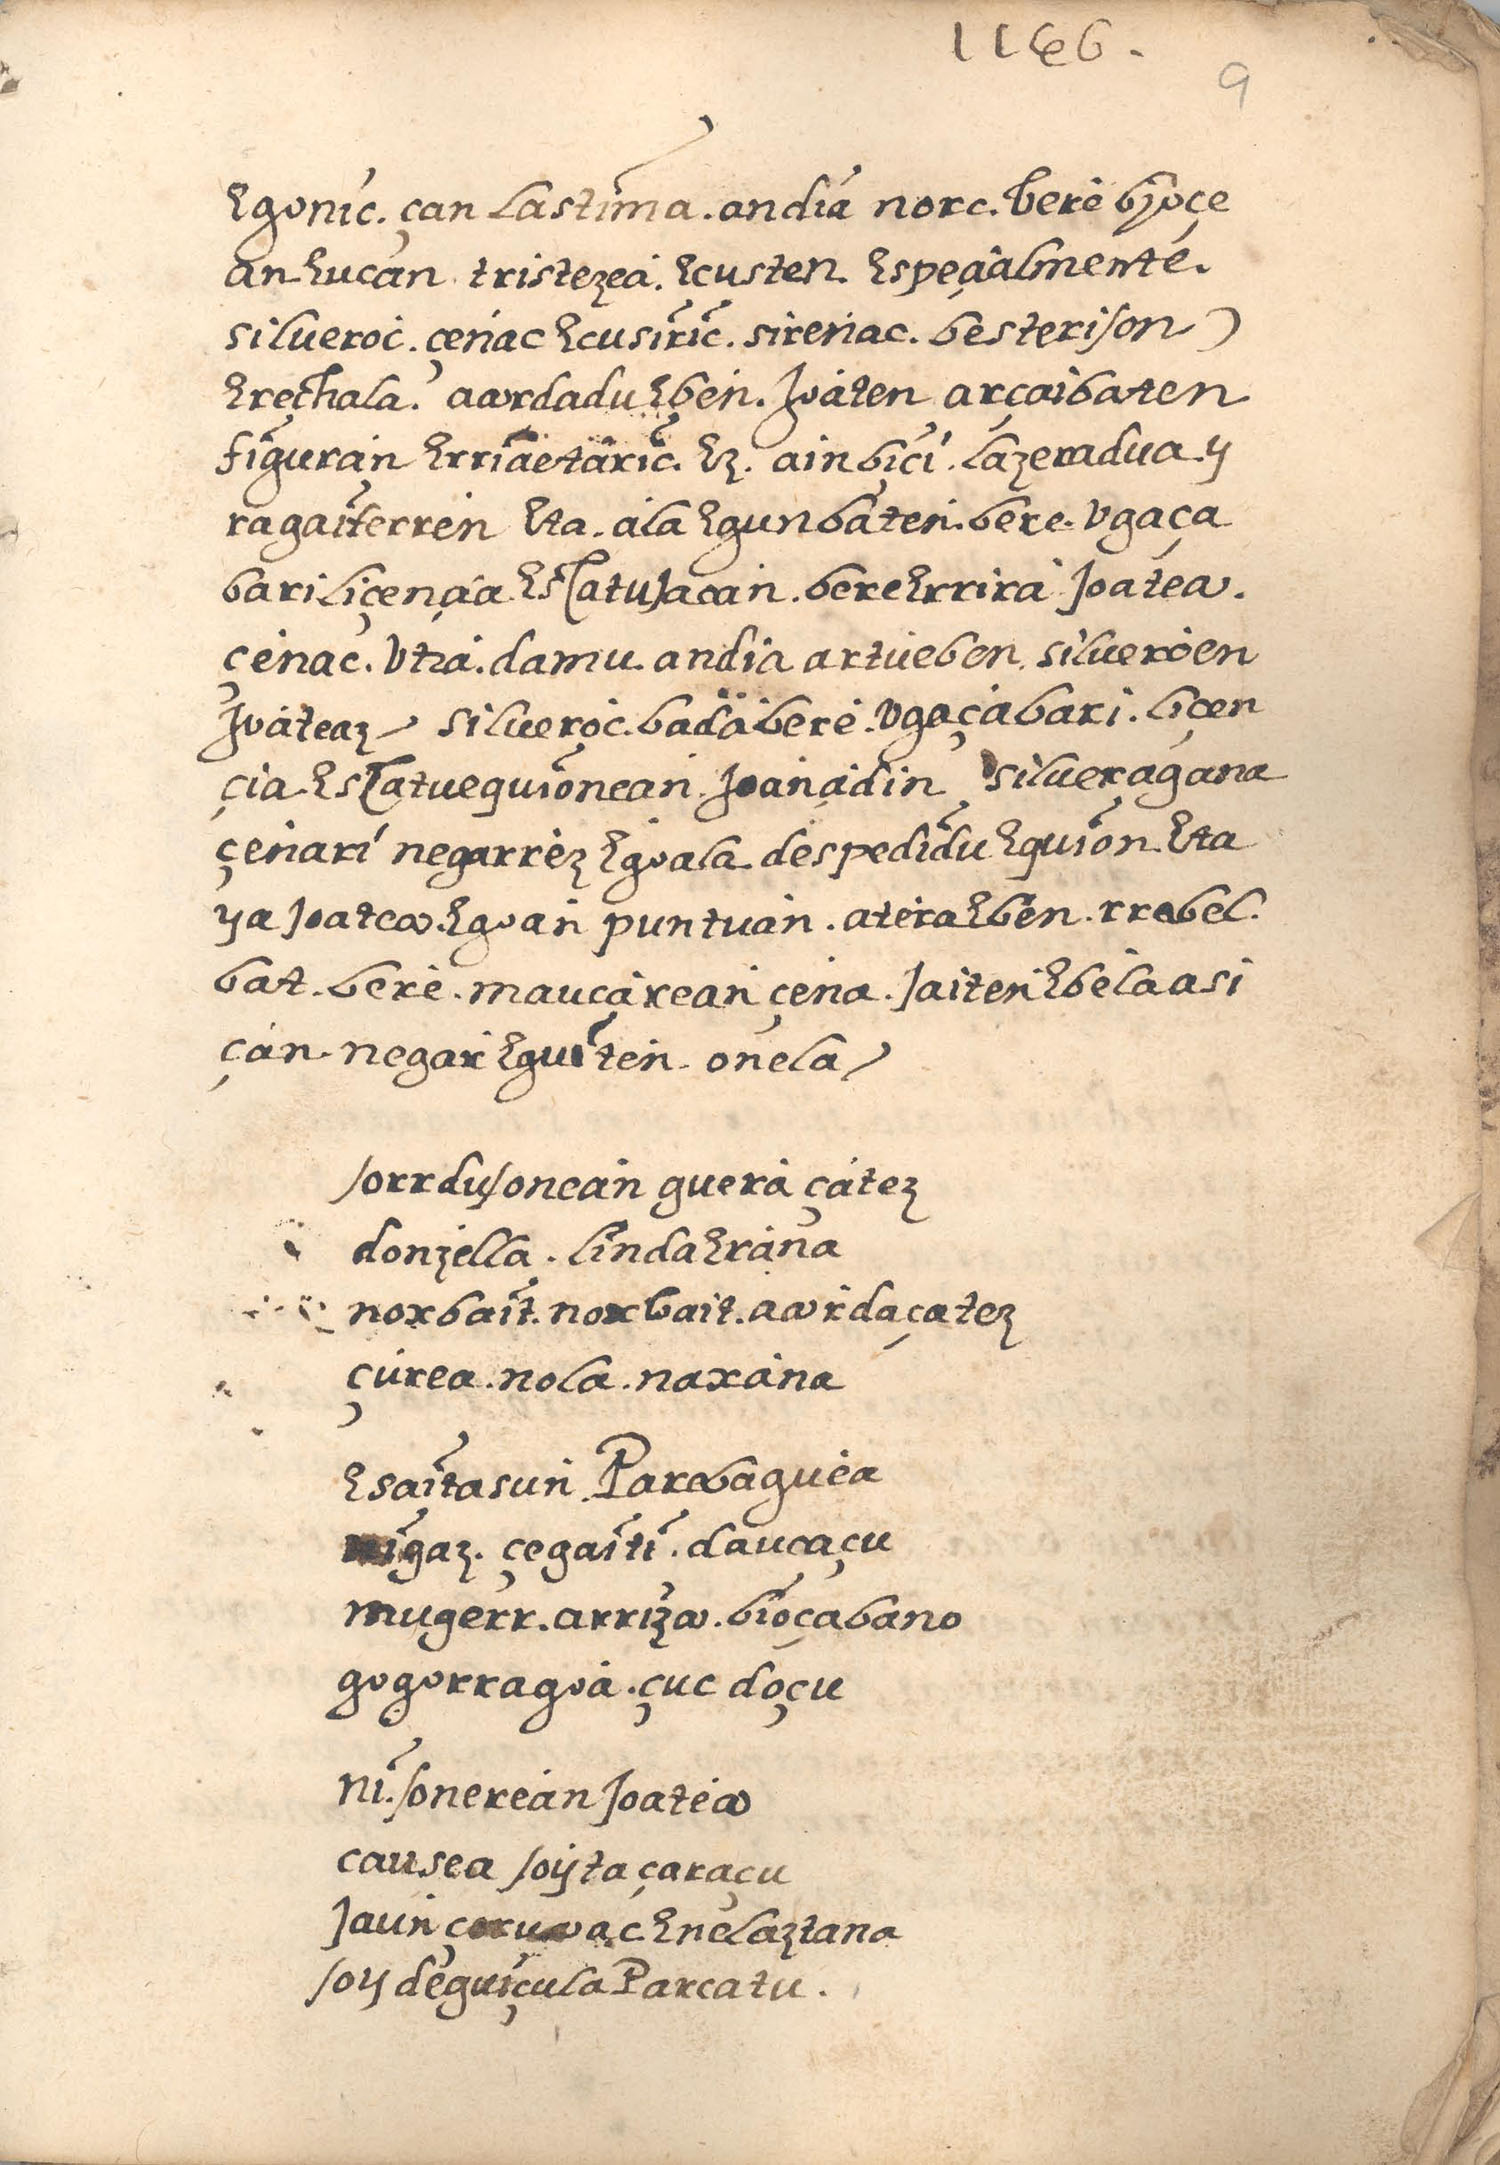 1166.
9
Egonic. çan Lastima. andia norc. bere bijoçe
an Eucan tristezea. Ecusten. Espeçialmente.
silueroc. çeñac Ecusiric. sirenac. besterison
Ereçhala. acordadu Eben. Joaten arçaibaten
figuran Erriaetaric. Ez. ain biçi. lazeradua. y
ragaiterren Eta. ala Egun baten. bere. Vgaça
bari liçençia Escatu Jacan. bere Errira Joatea.
çenac. Vtra. damu. andia artueben. silueroen
Joateaz silueroc. bada bere. Vgaçabari. liçen
çia Escatueguionean. Joançadin silueragana
çenari negarrez Egoala despedidu Eguion Eta
ya Joatea. Egoan puntuan. atera Eben. rrabel.
bat. bere. maucarean çena. Jaiten Ebela asi
çan. negar Eguiten. onela
sorrdusonean guera çatez
donzella. linda Erana
norbait. norbait. acordaçatez
çurea. nola. naxana
Esaitasun Parebaguea
nigaz. çegaiti. daucaçu
mugerr. arriza. bioçabano
gogorragoa. çuc doçu
ni. sonerean Joatea
causea soyta çaraçu
Jaun çeruac Enelaztana
soy deguiçula Parcatu.